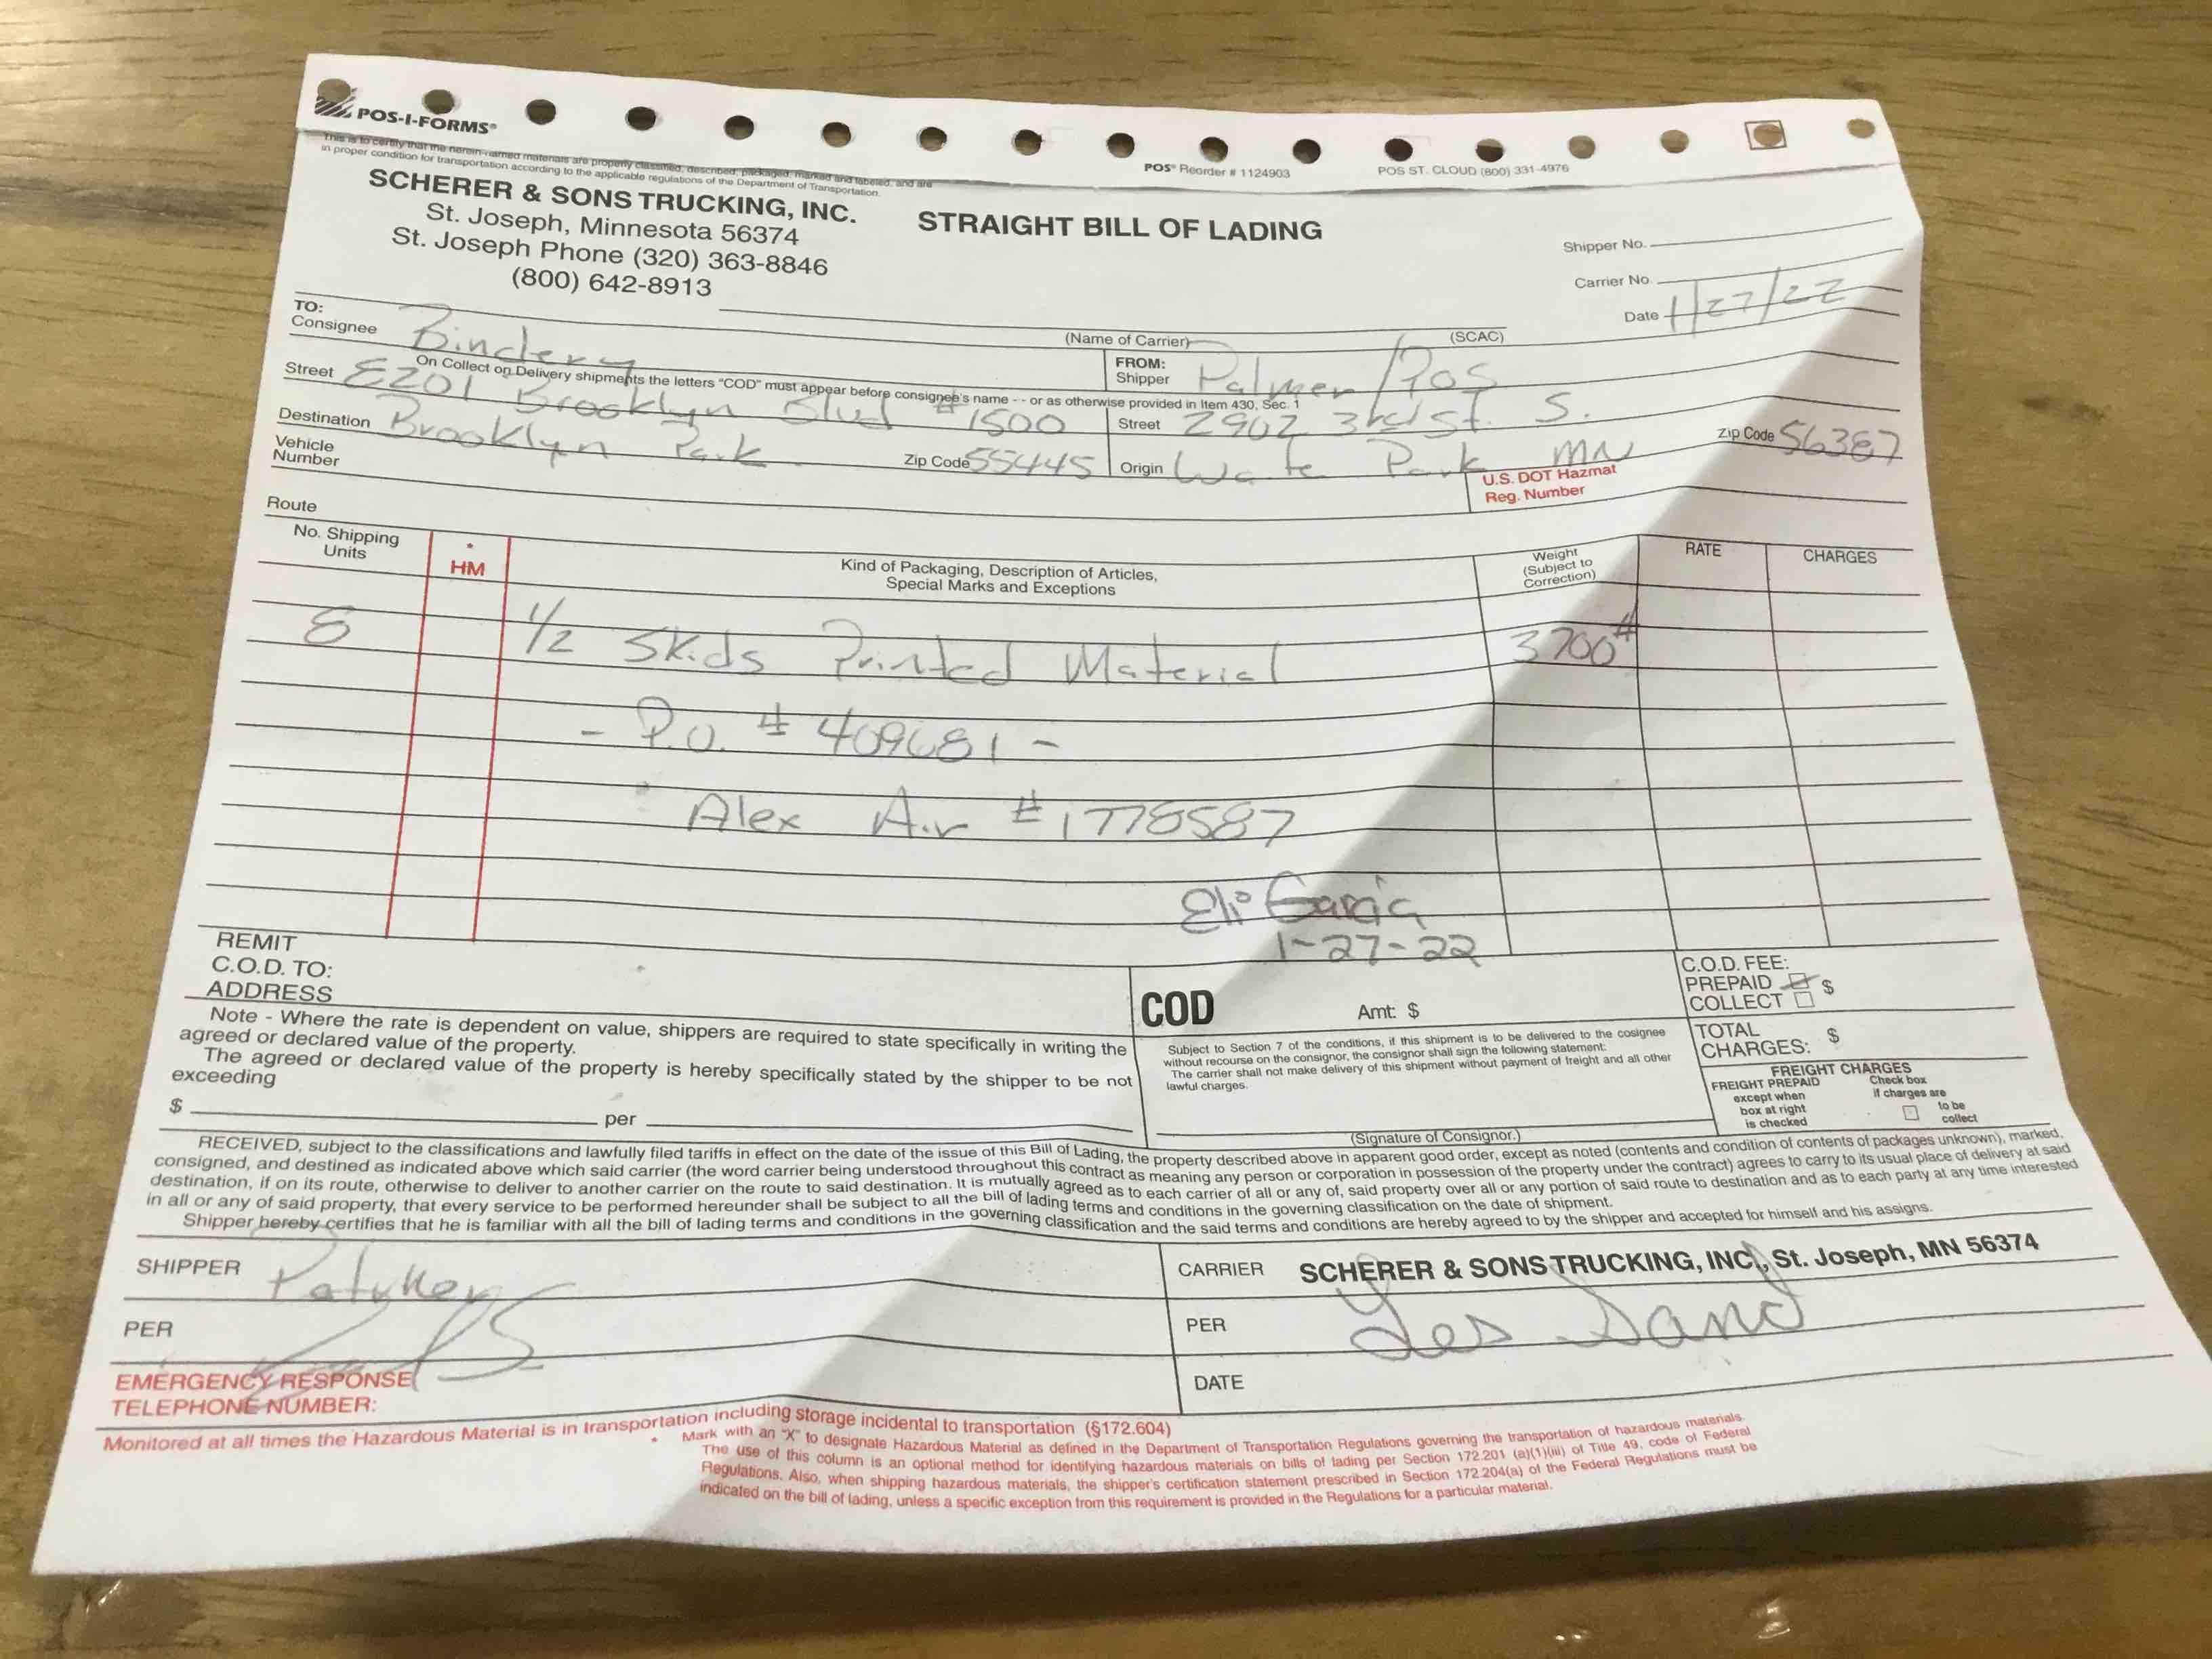 POS-I-FORMS®
This is to certify that the herein-named materials are properly classified, described, packaged, marked and labeled, and are
in proper condition for transportation according to the applicable regulations of the Department of Transportation.
POS® Reorder # 1124903
POS ST. CLOUD (800) 331-4976
SCHERER & SONS TRUCKING, INC.
St. Joseph, Minnesota 56374
St. Joseph Phone (320) 363-8846
(800) 642-8913
STRAIGHT BILL OF LADING
Shipper No.
Carrier No.
Date 1/27/22
(Name of Carrier)
(SCAC)
TO:
Consignee Bindery
On Collect on Delivery shipments the letters "COD" must appear before consignee's name - - or as otherwise provided in Item 430, Sec. 1
FROM:
Shipper Palmer/Pos
Street 8201 Brooklyn Blvd #1500
Street 2902 3rd St. S.
Destination Brooklyn Park Zip Code 55445
Origin Waite Park MN Zip Code 56387
Vehicle
Number
U.S. DOT Hazmat
Reg. Number
Route
No. Shipping
Units
*
HM
Kind of Packaging, Description of Articles,
Special Marks and Exceptions
Weight
(Subject to
Correction)
RATE
CHARGES
8 1/2 Skids Printed Material 3700#
- P.O. # 409681 -
Alex Air #1778587
Eli Garcia
1-27-22
REMIT
C.O.D. TO:
ADDRESS
COD
Amt: $
C.O.D. FEE:
PREPAID $
COLLECT
Note - Where the rate is dependent on value, shippers are required to state specifically in writing the
agreed or declared value of the property.
The agreed or declared value of the property is hereby specifically stated by the shipper to be not
exceeding
$ per
Subject to Section 7 of the conditions, if this shipment is to be delivered to the cosignee
without recourse on the consignor, the consignor shall sign the following statement:
The carrier shall not make delivery of this shipment without payment of freight and all other
lawful charges.
(Signature of Consignor.)
TOTAL
CHARGES: $
FREIGHT CHARGES
FREIGHT PREPAID
except when
box at right
is checked
Check box
if charges are
to be
collect
RECEIVED, subject to the classifications and lawfully filed tariffs in effect on the date of the issue of this Bill of Lading, the property described above in apparent good order, except as noted (contents and condition of contents of packages unknown), marked,
consigned, and destined as indicated above which said carrier (the word carrier being understood throughout this contract as meaning any person or corporation in possession of the property under the contract) agrees to carry to its usual place of delivery at said
destination, if on its route, otherwise to deliver to another carrier on the route to said destination. It is mutually agreed as to each carrier of all or any of, said property over all or any portion of said route to destination and as to each party at any time interested
in all or any of said property, that every service to be performed hereunder shall be subject to all the bill of lading terms and conditions in the governing classification on the date of shipment.
Shipper hereby certifies that he is familiar with all the bill of lading terms and conditions in the governing classification and the said terms and conditions are hereby agreed to by the shipper and accepted for himself and his assigns.
SHIPPER
PER
CARRIER SCHERER & SONS TRUCKING, INC., St. Joseph, MN 56374
PER Les Sand
DATE
EMERGENCY RESPONSE
TELEPHONE NUMBER:
Monitored at all times the Hazardous Material is in transportation including storage incidental to transportation (§172.604)
* Mark with an "X" to designate Hazardous Material as defined in the Department of Transportation Regulations governing the transportation of hazardous materials.
The use of this column is an optional method for identifying hazardous materials on bills of lading per Section 172.201 (a)(1)(iii) of Title 49, code of Federal
Regulations. Also, when shipping hazardous materials, the shipper's certification statement prescribed in Section 172.204(a) of the Federal Regulations must be
indicated on the bill of lading, unless a specific exception from this requirement is provided in the Regulations for a particular material.